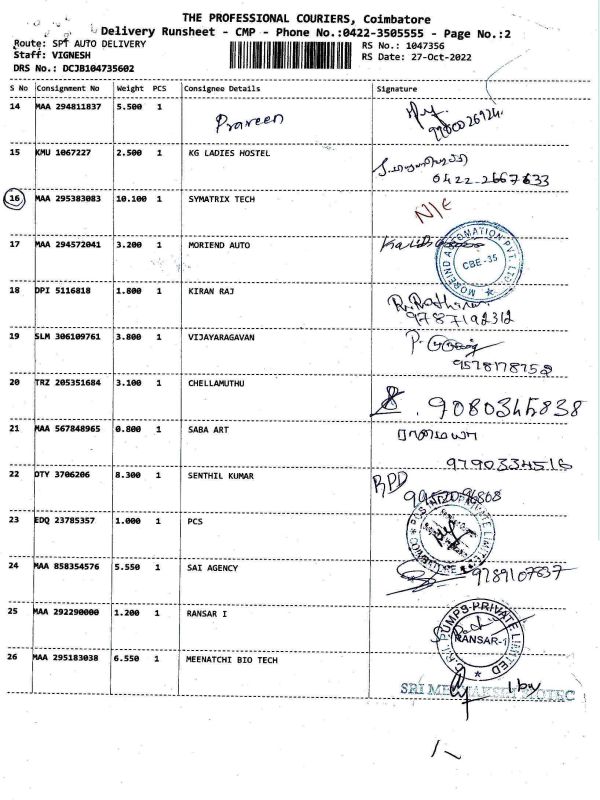 THE PROFESSIONAL COURIERS, Coimbatore
Delivery Runsheet - CMP - Phone No.:0422-3505555 - Page No.:2
Route: SPT AUTO DELIVERY
RS No.: 1047356
Staff: VIGNESH
RS Date: 27-Oct-2022
DRS No.: DCJB104735602
S No Consignment No Weight PCS Consignee Details Signature
14 MAA 294811837 5.500 1 Praveen
15 KMU 1067227 2.500 1 KG LADIES HOSTEL
0422-2667633
16 MAA 295383083 10.100 1 SYMATRIX TECH
N/E
17 MAA 294572041 3.200 1 MORIEND AUTO
MOREIND AUTOMATION PVT. LTD. CBE-35
18 DPI 5116818 1.800 1 KIRAN RAJ
9787192312
19 SLM 306109761 3.800 1 VIJAYARAGAVAN
9578178758
20 TRZ 205351684 3.100 1 CHELLAMUTHU
9080345838
21 MAA 567848965 0.800 1 SABA ART
9790334516
22 DTY 3706206 8.300 1 SENTHIL KUMAR
RPD
23 EDQ 23785357 1.000 1 PCS
24 MAA 858354576 5.550 1 SAI AGENCY
9789107837
25 MAA 292290000 1.200 1 RANSAR I
C.R.I. PUMPS PRIVATE LIMITED RANSAR-1
26 MAA 295183038 6.550 1 MEENATCHI BIO TECH